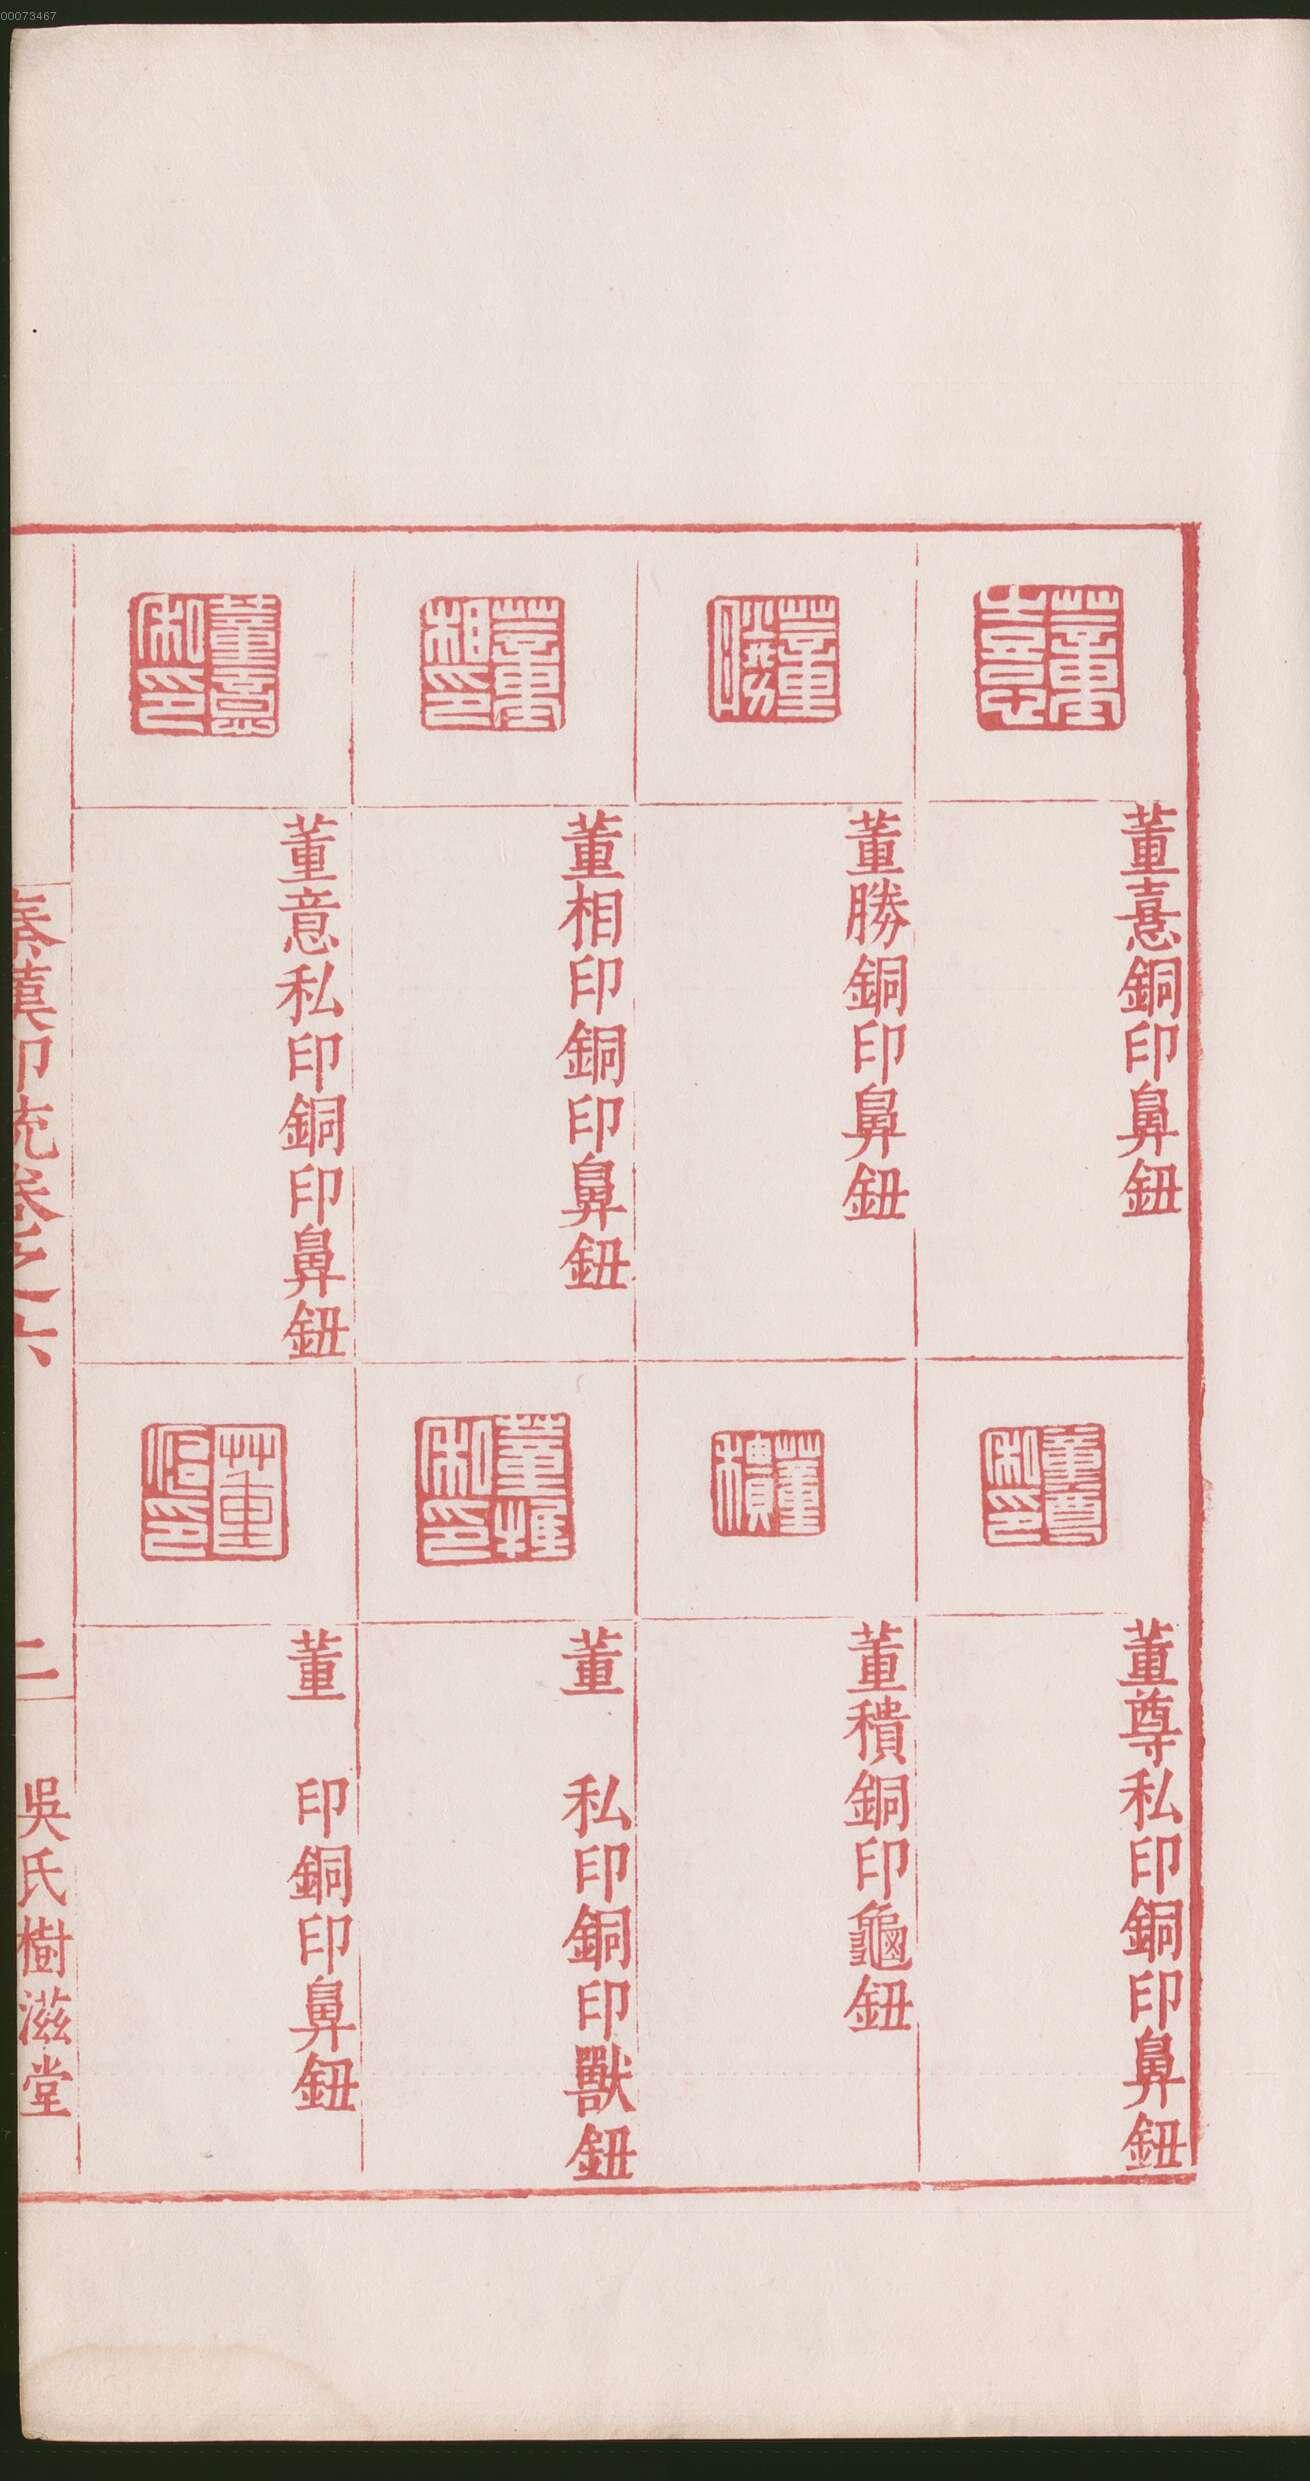 00073467
董憙
董憙銅印鼻鈕
董勝
董勝銅印鼻鈕
董相印
董相印銅印鼻鈕
董意私印
董意私印銅印鼻鈕
董尊私印
董尊私印銅印鼻鈕
董穨
董穨銅印龜鈕
董 私印
董 私印銅印獸鈕
董 印
董 印銅印鼻鈕
秦漢印統卷之六
二
吳氏樹滋堂